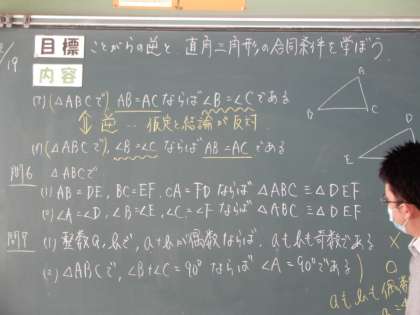 2/19
目標 ことがらの逆と、直角三角形の合同条件を学ぼう
内容
(ア) (△ABCで) AB=ACならば∠B=∠Cである
逆… 仮定と結論が反対
(イ) (△ABCで) ∠B=∠CならばAB=ACである
A
B
C
D
E
問6 △ABCで
(1) AB=DE, BC=EF, CA=FDならば△ABC≡△DEF
(2) ∠A=∠D, ∠B=∠E, ∠C=∠Fならば△ABC≡△DEF
問7 (1) 整数a,bで, a+bが偶数ならば, aもbも奇数である ×
(2) △ABCで, ∠B+∠C=90°ならば∠A=90°である ○
aもbも偶数